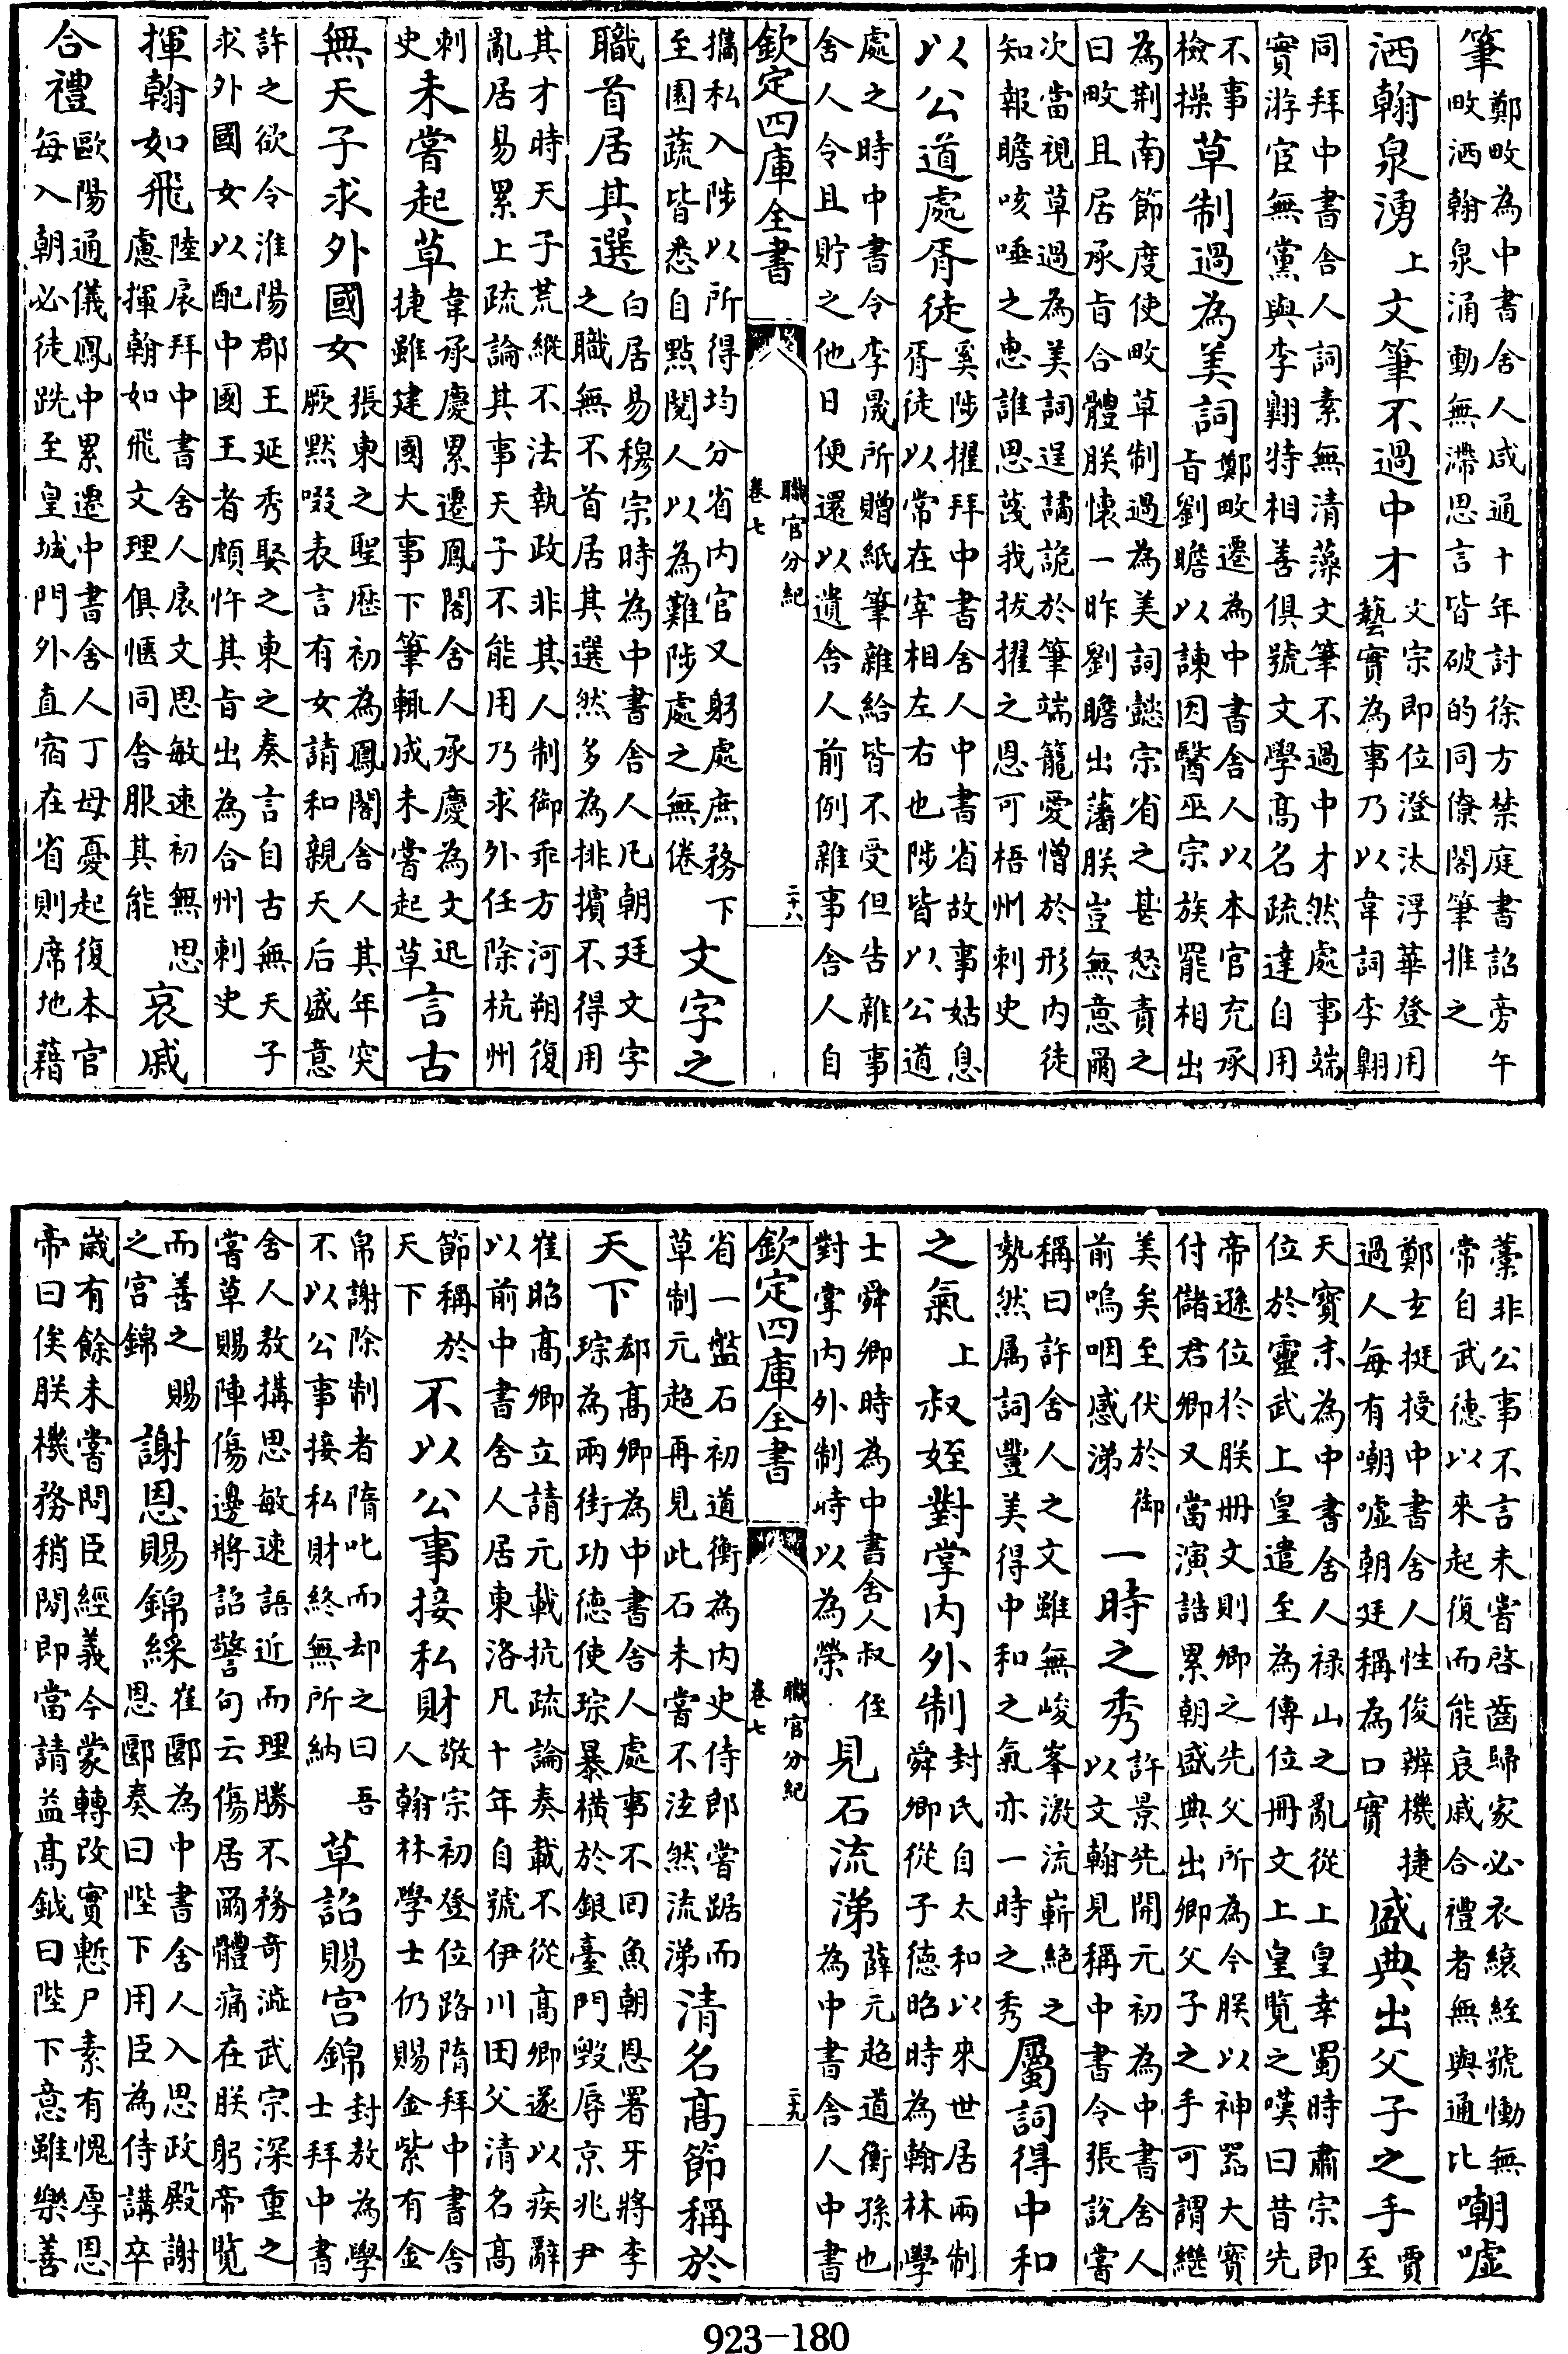 筆鄭畋為中書舍人咸通十年討徐方禁庭書詔旁午畋洒翰泉涌動無滯思言皆破的同僚閣筆推之
洒翰泉湧上文筆不過中才文宗即位澄汰浮華登用藝實為事乃以韋詞李翺
同拜中書舍人詞素無清藻文筆不過中才然處事端實游宦無黨與李翺特相善俱號文學高名疏達自用
不事檢操草制過為美詞鄭畋遷為中書舍人以本官充承旨劉瞻以諫因醫巫宗族罷相出
為荆南節度使畋草制過為美詞懿宗省之甚怒責之曰畋且居承旨合體朕懷一昨劉瞻出藩朕豈無意爾
次當視草過為美詞逞譎詭於筆端籠愛憎於形内徒知報瞻咳唾之惠誰思蔑我拔擢之恩可梧州刺史
以公道處胥徒奚陟擢拜中書舍人中書省故事姑息胥徒以常在宰相左右也陟皆以公道
處之時中書令李晟所贈紙筆雜給皆不受但告雜事舍人令且貯之他日便還以遺舍人前例雜事舍人自
欽定四庫全書 職官分紀 卷七 二十八
攜私入陟以所得均分省内官又躬處庶務下至園蔬皆悉自點閱人以為難陟處之無倦文字之
職首居其選白居易穆宗時為中書舍人凡朝廷文字之職無不首居其選然多為排擯不得用
其才時天子荒縱不法執政非其人制御乖方河朔復亂居易累上疏論其事天子不能用乃求外任除杭州
刺史未嘗起草韋承慶累遷鳳閣舍人承慶為文迅捷雖建國大事下筆輒成未嘗起草言古
無天子求外國女張東之聖厯初為鳳閣舍人其年突厥默啜表言有女請和親天后盛意
許之欲令淮陽郡王延秀娶之東之奏言自古無天子求外國女以配中國王者頗忤其旨出為合州刺史
揮翰如飛陸扆拜中書舍人扆文思敏速初無思慮揮翰如飛文理俱愜同舍服其能哀戚
合禮歐陽通儀鳳中累遷中書舍人丁母憂起復本官每入朝必徒跣至皇城門外直宿在省則席地藉
藁非公事不言未嘗啓齒歸家必衣縗絰號慟無常自武徳以來起復而能哀戚合禮者無與通比嘲噓
鄭玄挺授中書舍人性俊辨機捷過人每有嘲噓朝廷稱為口實盛典出父子之手賈至
天寶末為中書舍人禄山之亂從上皇幸蜀時肅宗即位於靈武上皇遣至為傳位冊文上皇覽之嘆曰昔先
帝遜位於朕冊文則卿之先父所為今朕以神器大寶付儲君卿又當演誥累朝盛典出卿父子之手可謂繼
美矣至伏於御前嗚咽感涕一時之秀許景先開元初為中書舍人以文翰見稱中書令張說嘗
稱曰許舍人之文雖無峻峯激流嶄絶之勢然属詞豐美得中和之氣亦一時之秀屬詞得中和
之氣上叔姪對掌内外制封氏自太和以來世居兩制舜卿從子徳昭時為翰林學
士舜卿時為中書舍人叔侄對掌内外制時以為榮見石流涕薛元超道衡孫也為中書舍人中書
欽定四庫全書 職官分紀 卷七 二十九
省一盤石初道衡為内史侍郎嘗踞而草制元超再見此石未嘗不泫然流涕清名高節稱於
天下郄高卿為中書舍人處事不回魚朝恩署牙將李琮為兩街功徳使琮暴横於銀臺門毁辱京兆尹
崔昭高卿立請元載抗疏論奏載不從高卿遂以疾辭以前中書舍人居東洛凡十年自號伊川田父清名高
節稱於天下不以公事接私財敬宗初登位路隋拜中書舍人翰林學士仍賜金紫有金
帛謝除制者隋叱而却之曰吾不以公事接私財終無所納草詔賜宫錦封敖為學士拜中書
舍人敖搆思敏速語近而理勝不務奇澁武宗深重之嘗草賜陣傷邊將詔警句云傷居爾體痛在朕躬帝覽
而善之賜之宫錦謝恩賜錦綵崔郾為中書舍人入思政殿謝恩郾奏曰陛下用臣為侍講卒
嵗有餘未嘗問臣經義今蒙轉改實慙尸素有愧厚恩帝曰俟朕機務稍閒即當請益高釴曰陛下意雖樂善
923-180